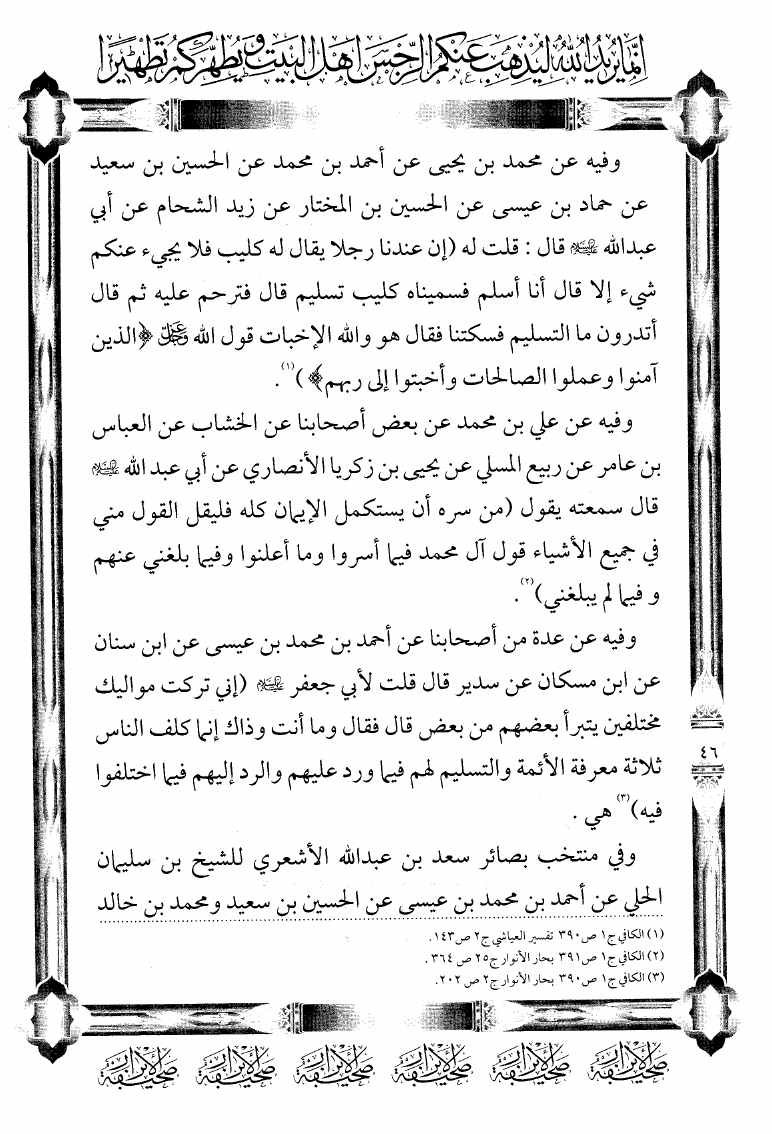 إنما يريد الله ليذهب عنكم الرجس أهل البيت ويطهركم تطهيرا
وفيه عن محمد بن يحيى عن أحمد بن محمد عن الحسين بن سعيد
عن حماد بن عيسى عن الحسين بن المختار عن زيد الشحام عن أبي
عبدالله عليه السلام قال : قلت له (إن عندنا رجلا يقال له كليب فلا يجيء عنكم
شيء إلا قال أنا أسلم فسميناه كليب تسليم قال فترحم عليه ثم قال
أتدرون ما التسليم فسكتنا فقال هو والله الإخبات قول الله عز وجل ﴿الذين
آمنوا وعملوا الصالحات وأخبتوا إلى ربهم﴾)(١).
وفيه عن علي بن محمد عن بعض أصحابنا عن الخشاب عن العباس
بن عامر عن ربيع المسلي عن يحيى بن زكريا الأنصاري عن أبي عبد الله عليه السلام
قال سمعته يقول (من سره أن يستكمل الإيمان كله فليقل القول مني
في جميع الأشياء قول آل محمد فيما أسروا وما أعلنوا وفيما بلغني عنهم
و فيما لم يبلغني)(٢).
وفيه عن عدة من أصحابنا عن أحمد بن محمد بن عيسى عن ابن سنان
عن ابن مسكان عن سدير قال قلت لأبي جعفر عليه السلام (إني تركت مواليك
مختلفين يتبرأ بعضهم من بعض قال فقال وما أنت وذاك إنما كلف الناس
ثلاثة معرفة الأئمة والتسليم لهم فيما ورد عليهم والرد إليهم فيما اختلفوا
فيه)(٣) هي .
وفي منتخب بصائر سعد بن عبدالله الأشعري للشيخ بن سليمان
الحلي عن أحمد بن محمد بن عيسى عن الحسين بن سعيد ومحمد بن خالد
(١) الكافي ج١ ص٣٩٠ تفسير العياشي ج٢ ص١٤٣.
(٢) الكافي ج١ ص٣٩١ بحار الأنوار ج٢٥ ص ٣٦٤.
(٣) الكافي ج١ ص٣٩٠ بحار الأنوار ج٢ ص ٢٠٢.
٤٦